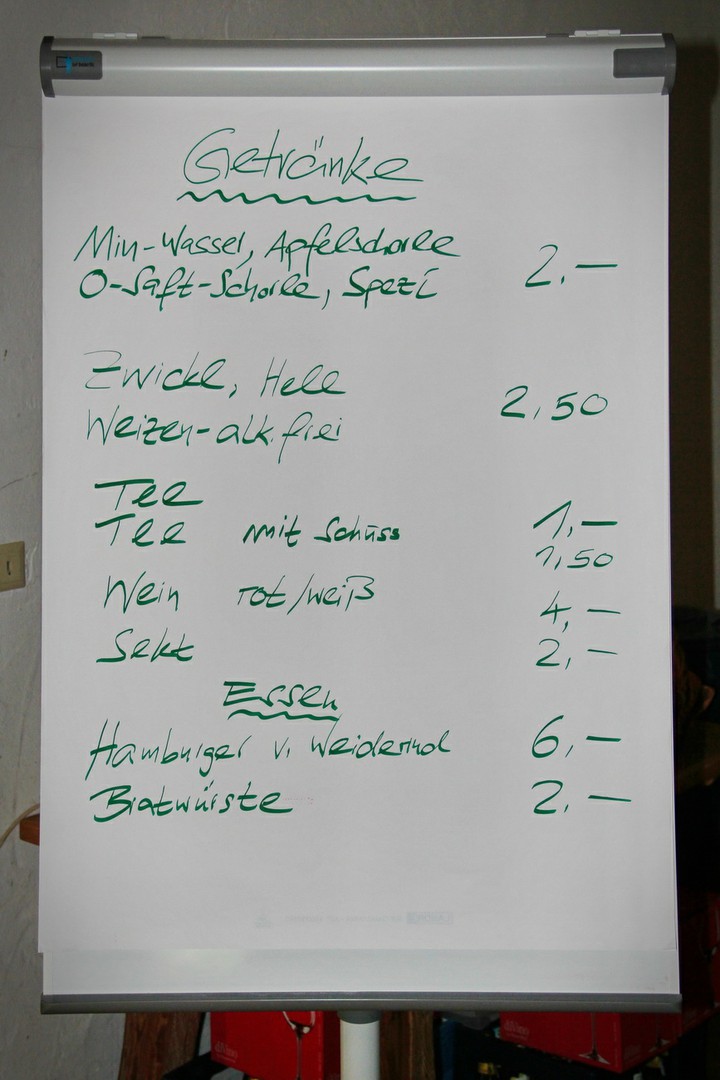 Getränke
Min-Wasser, Apfelschorle
O-Saft-Schorle, Spezi 2.—
Zwickl, Hell
Weizen-alk.frei 2,50
Tee
Tee mit Schuss 1,—
1,50
Wein rot/weiß 4,—
Sekt 2,—
Essen
Hamburger v. Weiderind 6,—
Bratwürste 2.—